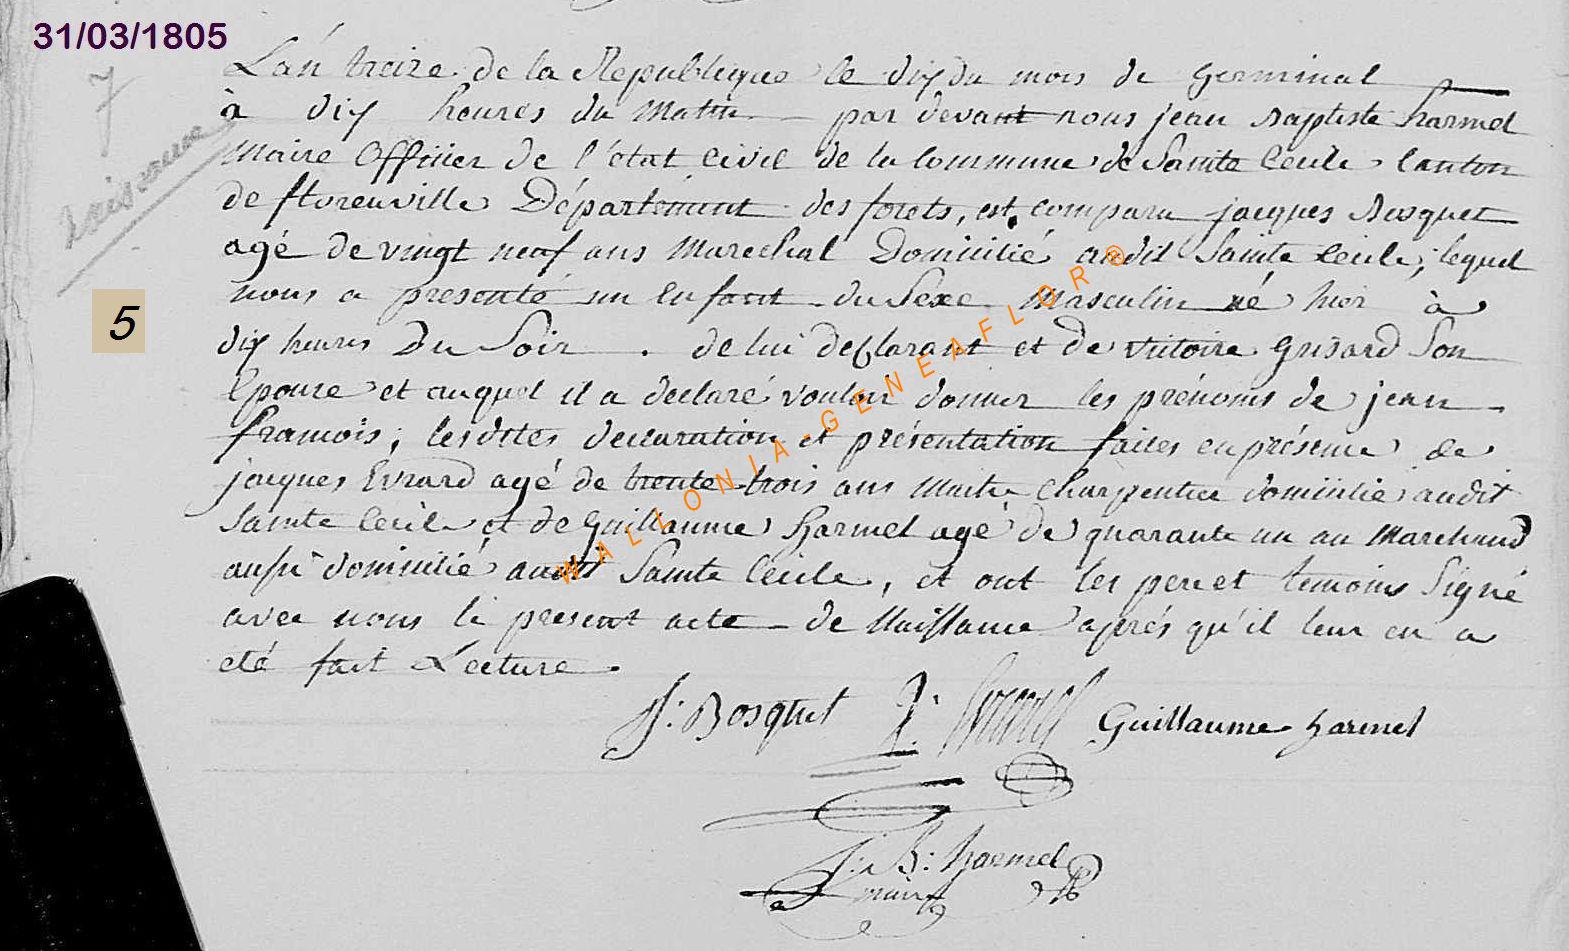 31/03/1805
7
Naissance
5
L'an treize de la Republique le dix du mois de Germinal
à dix heures du Matin par devant nous jean Baptiste harmel
Maire Officier de l'état civil de la Commune de Sainte Cecile Canton
de florenville Département des forets, est comparu jacques Bosquet
agé de vingt neuf ans Marechal Domicilié audit Sainte Cecile, lequel
nous a presenté un Enfant du Sexe Masculin né hier à
dix heures Du Soir . de lui declarant et de victoire Grisard Son
Epouse et auquel il a declaré vouloir donner les prénoms de jean
francois; lesdites declaration et présentation faites en présence de
jacques Evrard agé de trente trois ans Maitre Charpentier domicilié audit
Sainte Cecile et de Guillaume harmel agé de quarante un an Marchand
aussi domicilié audit Sainte Cecile, et ont les pere et temoins Signé
avec nous le present acte de Naissance après qu'il leur en a
eté fait Lecture.
J: Bosquet J: Evrard Guillaume harmel
J: B: harmel
maire
WALLONIA-GENEAFLOR®